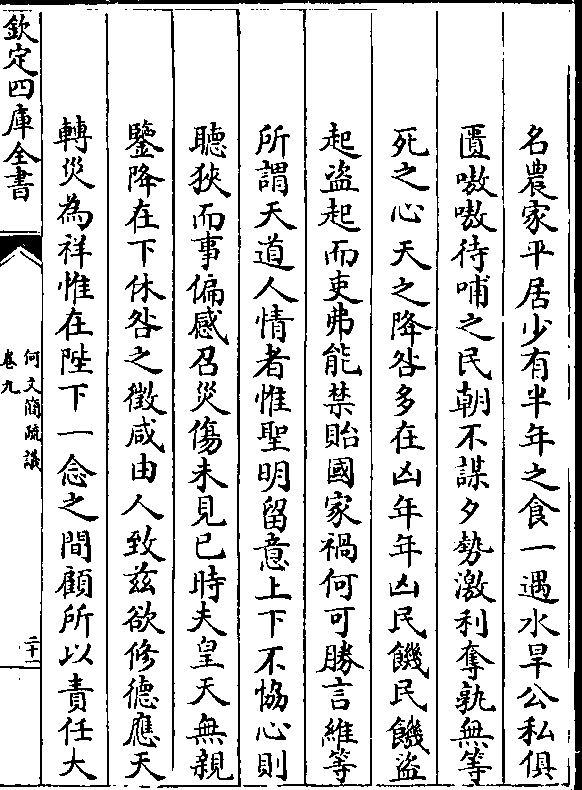 名農家平居少有半年之食一遇水旱公私俱
匱嗷嗷待哺之民朝不謀夕勢激利奪孰無等
死之心天之降咎多在凶年年凶民饑民饑盜
起盜起而吏弗能禁貽國家禍何可勝言維等
所謂天道人情者惟聖明留意上下不協心則
聽狹而事偏感召災傷未見已時夫皇天無親
鑒降在下休咎之徵咸由人致茲欲修德應天
轉災為祥惟在陛下一念之間顧所以責任大
欽定四庫全書
何文簡疏議
卷九
二十一